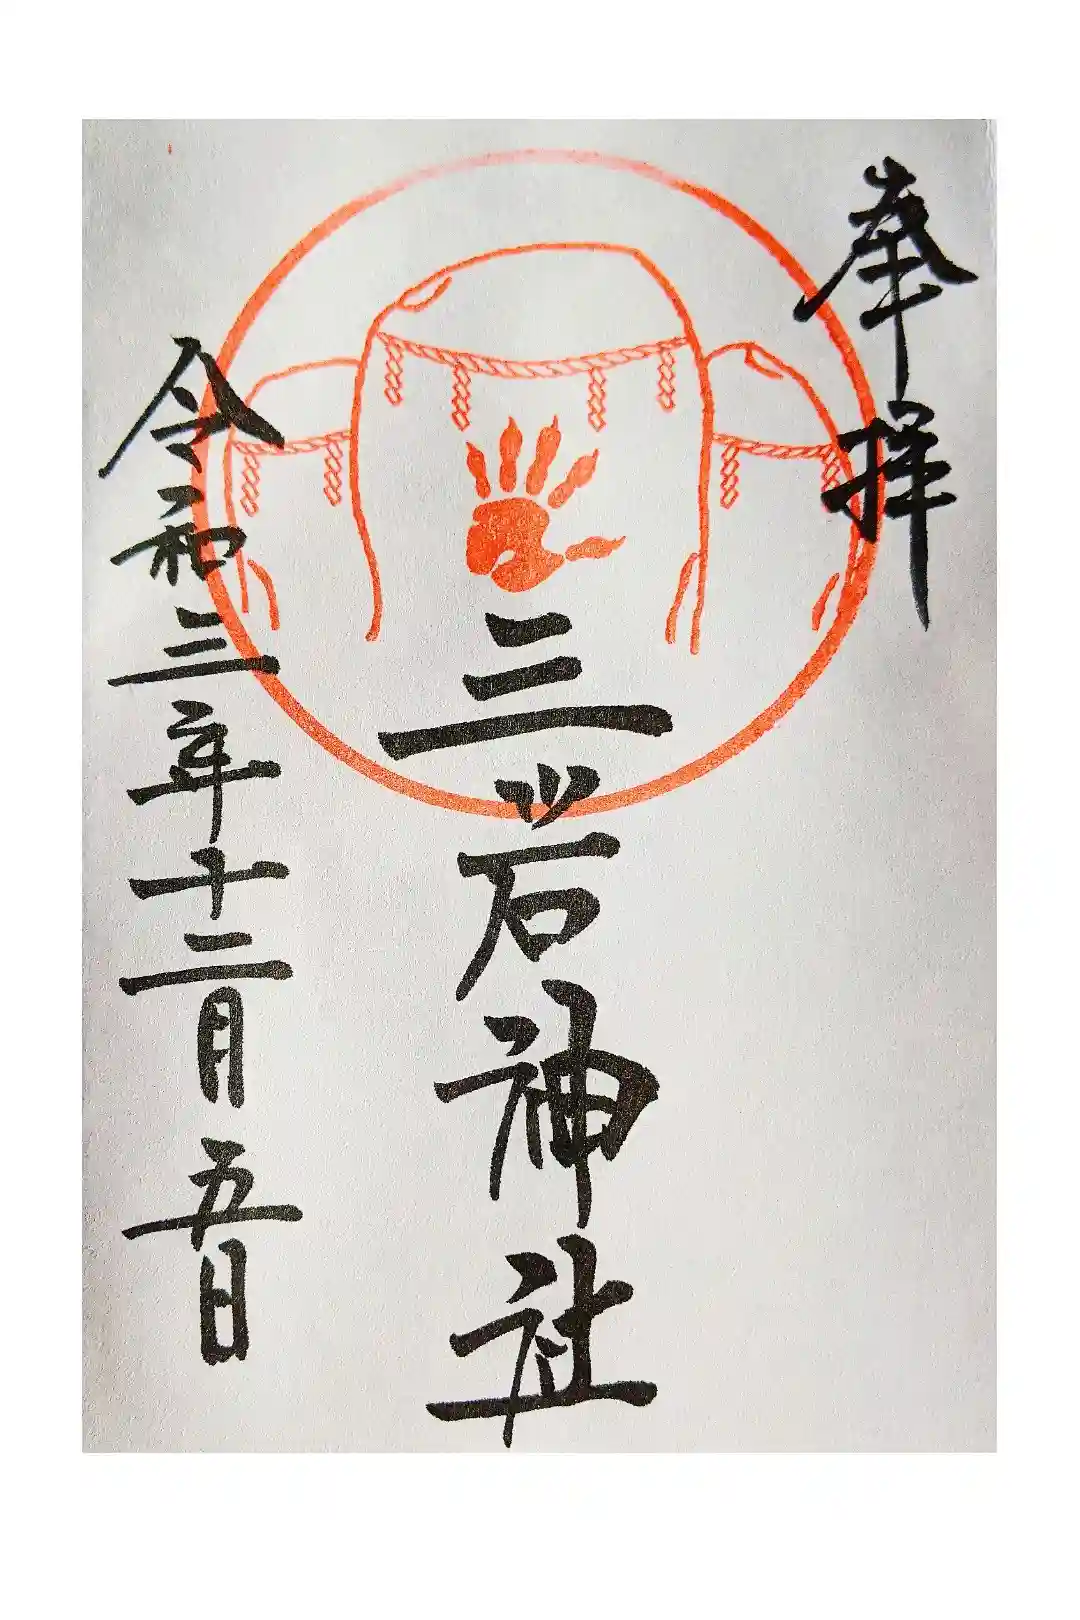 奉拝
三ツ石神社
令和三年十二月五日